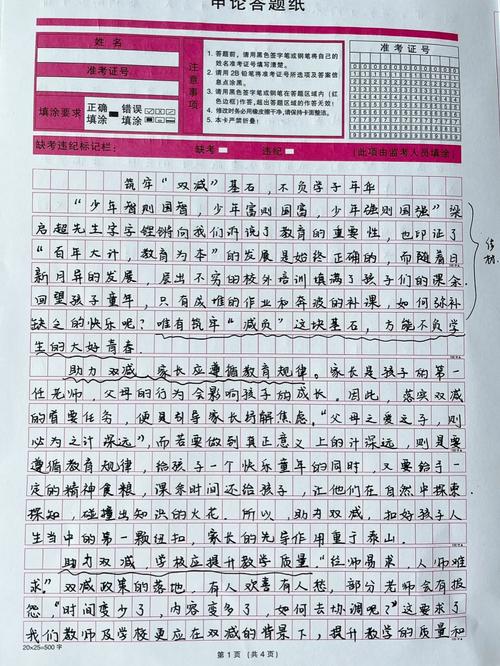 申论答题纸
姓名
准考证号
填涂要求
正确填涂
错误填涂
注意事项
1. 答题前，请用黑色签字笔或钢笔将自己的姓名准考证号填写清楚。
2. 请用2B铅笔将准考证号所选项及答案信息点涂黑。
3. 请用黑色签字笔或钢笔在答题区域内（红色边框）作答，超出答题区域的作答无效！
4. 修改时务必用橡皮擦干净，请保持卡面整洁。
5. 本卡严禁折叠！
准考证号
缺考违纪标记栏：
缺考
违纪
（此项由监考人员填涂）
筑牢“双减”基石，不负学子年华
“少年智则国智，少年富则国富，少年强则国强”梁
启超先生字字铿锵向我们诉说了教育的重要性，也印证了
“百年大计，教育为本”的发展是始终正确的，而随着日
新月异的发展，层出不穷的校外培训填满了孩子们的课余，
回望孩子童年，只有成堆的作业和奔波的补课，如何弥补
缺乏的快乐呢？唯有筑牢“减负”这块基石，方能不负学
生的大好青春。
助力双减，家长应遵循教育规律。家长是孩子的第一
任老师，父母的行为会影响孩子的成长。因此，落实双减
的首要任务，便是引导家长纾解焦虑。“父母之爱之子，则
必为之计深远”，而若要做到真正意义上的计深远，则是要
遵循教育规律，给孩子一个快乐童年的同时，又要给予一
定的精神食粮，课余时间还给孩子，让他们在自然中探索
探知，碰撞出知识的火花。所以，助力双减，扣好孩子人
生当中的第一颗纽扣，家长的先导作用重于泰山。
助力双减，学校应提升教学质量。“经师易求，人师难
求。”双减政策的落地，有人欢喜有人愁，部分老师会有抱
怨，“时间变少了，内容变多了，如何去协调呢？”这要求了
我们教师及学校更应在双减的背景下，提升教学的质量和
20×25=500字
第1页（共4页）